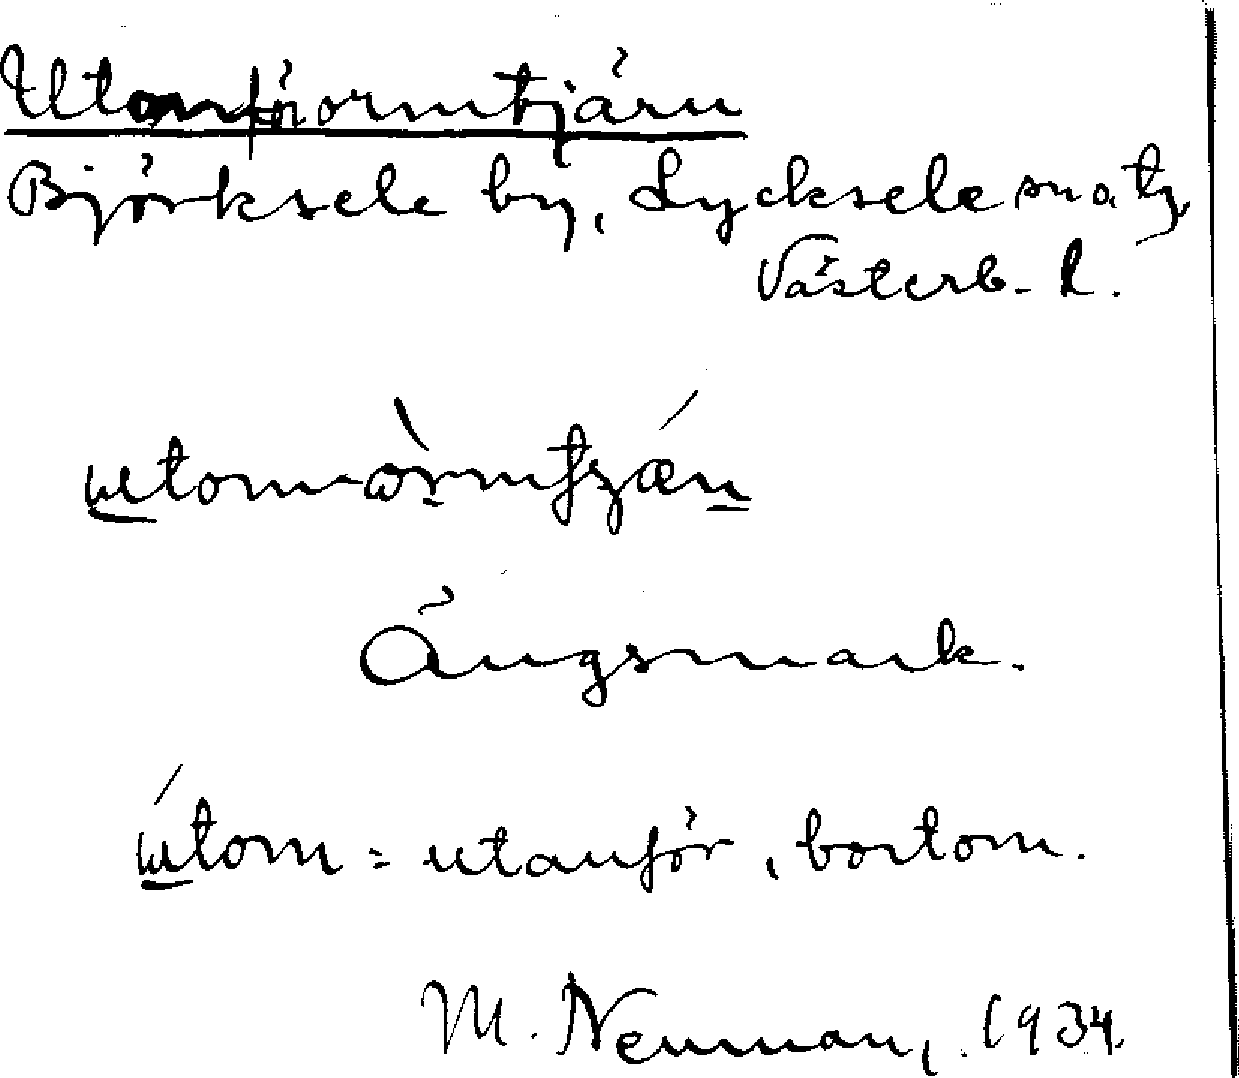 Utanförormtjärn
Björksele by, Lycksele snatg
Västerb. l.
Ängsmark.
útom = utanför, bortom.
M. Neuman, 1934.